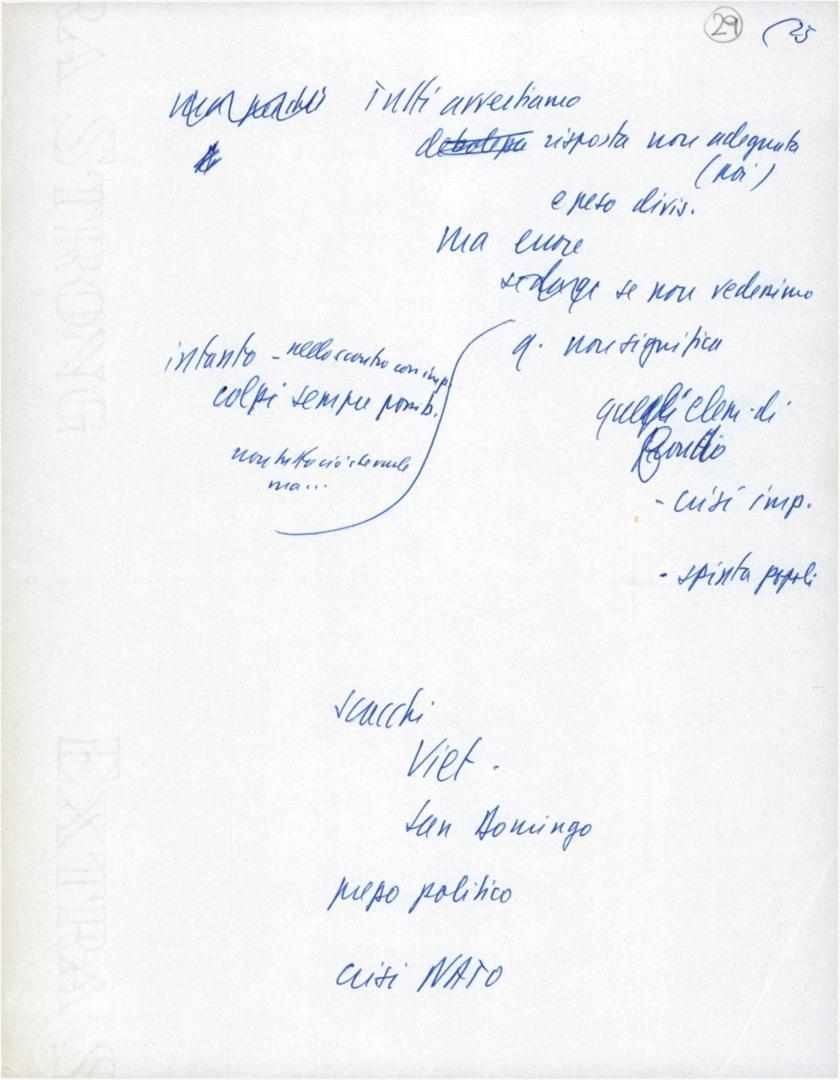 29 25
Tutti avvertiamo
debolezza risposta non adeguata
(noi)
e peso divis.
ma errore
se non vedessimo
q. non significa
intanto - nello scontro con imp.
colpi sempre possib.
non tutto ciò che vuole
ma...
quegli elem. di
fondo
- crisi imp.
- spinta popoli
scacchi
Viet.
San Domingo
prezzo politico
crisi NATO
EXTRA STRONG